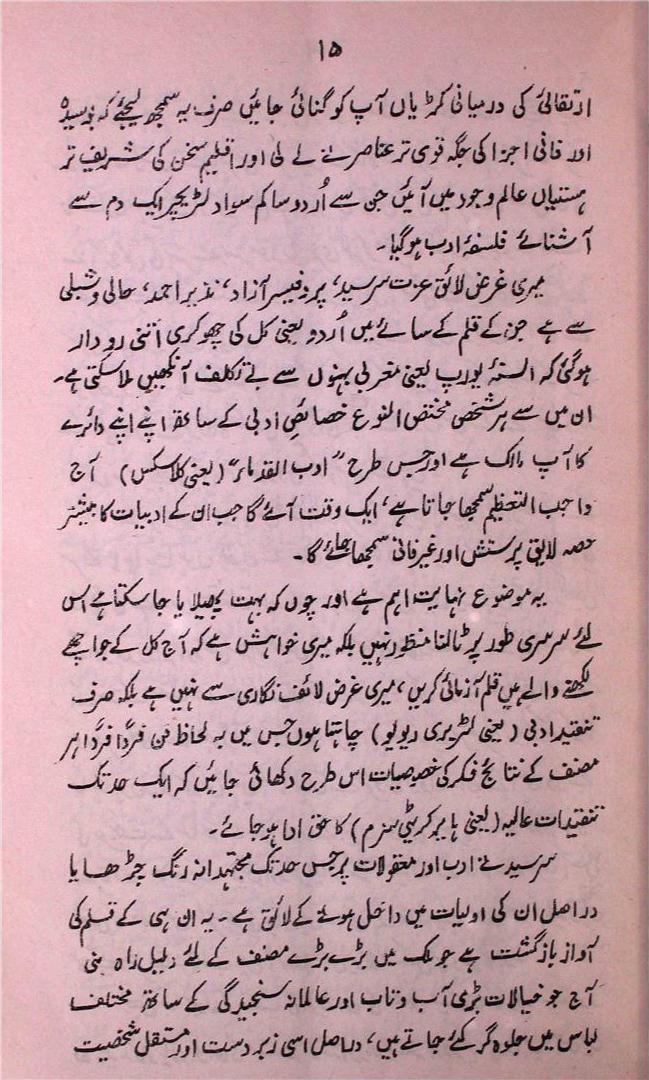 ۱۵
ارتقائی کی درمیانی کڑیاں آپ کو گنائی جائیں صرف یہ سمجھ لیجئے کہ بوسیدہ
اور فانی اجزا کی جگہ قوی تر عناصر نے لے لی اور اقلیم سخن کی شریف تر
ہستیاں عالم وجود میں آئیں جن سے اُردو سا کم سواد لٹریچر ایک دم سے
آشنائے فلسفۂ ادب ہو گیا۔
میری غرض لائق عزت سرسید، پروفیسر آزاد، نذیر احمد، حالی و شبلی
سے ہے جن کے قلم کے سائے میں اُردو یعنی کل کی چھوکری اتنی رو دار
ہو گئی کہ السنۂ یورپ یعنی مغربی بہنوں سے بے تکلف آنکھیں ملا سکتی ہے۔
ان میں سے ہر شخص مختص النوع خصائصِ ادبی کے ساتھ اپنے اپنے دائرے
کا آپ مالک ہے اور جس طرح ”ادب القدماء“ (یعنی کلاسکس) آج
واجب التعظیم سمجھا جاتا ہے، ایک وقت آئے گا جب ان کے ادبیات کا بیشتر
حصہ لایق پرستش اور غیر فانی سمجھا جائے گا۔
یہ موضوع نہایت اہم ہے اور چوں کہ بہت پھیلایا جا سکتا ہے اس
لئے سرسری طور پر ٹالنا منظور نہیں بلکہ میری خواہش ہے کہ آج کل کے جو اچھے
لکھنے والے ہیں قلم آزمائی کریں، میری غرض لائف نگاری سے نہیں ہے بلکہ صرف
تنقید ادبی (یعنی لٹریری ریویو) چاہتا ہوں جس میں بہ لحاظ فن فرداً فرداً ہر
مصنف کے نتائج فکر کی خصوصیات اس طرح دکھائی جائیں کہ ایک حد تک
تنقیدات عالیہ (یعنی ہایر کریٹی سزم) کا حق ادا ہو جائے۔
سرسید نے ادب اور معقولات پر جس حد تک مجتہدانہ رنگ چڑھایا
دراصل ان کی اولیات میں داخل ہونے کے لائق ہے۔ یہ ان ہی کے قلم کی
آواز بازگشت ہے جو ملک میں بڑے بڑے مصنف کے لئے دلیل راہ بنی
آج جو خیالات بڑی آب و تاب اور عالمانہ سنجیدگی کے ساتھ مختلف
لباس میں جلوہ گر کئے جاتے ہیں، دراصل اسی زبردست اور مستقل شخصیت